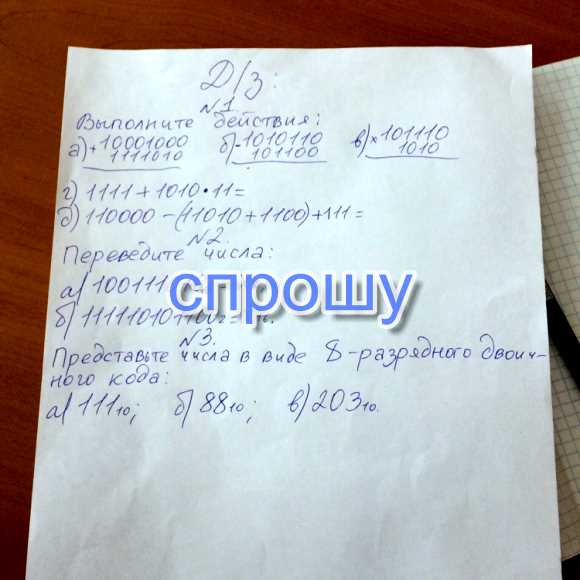 Д/з:
№1
Выполните действия:
а) + 10001000 б) - 1010110 в) × 101110
1111010 101100 1010
г) 1111 + 1010 · 11 =
д) 110000 - (11010 + 1100) + 111 =
№2.
Переведите числа:
а) 100111
спрошу
б)
№3.
Представьте числа в виде 8-разрядного двоич-
ного кода:
а) 111₁₀; б) 88₁₀; в) 203₁₀.